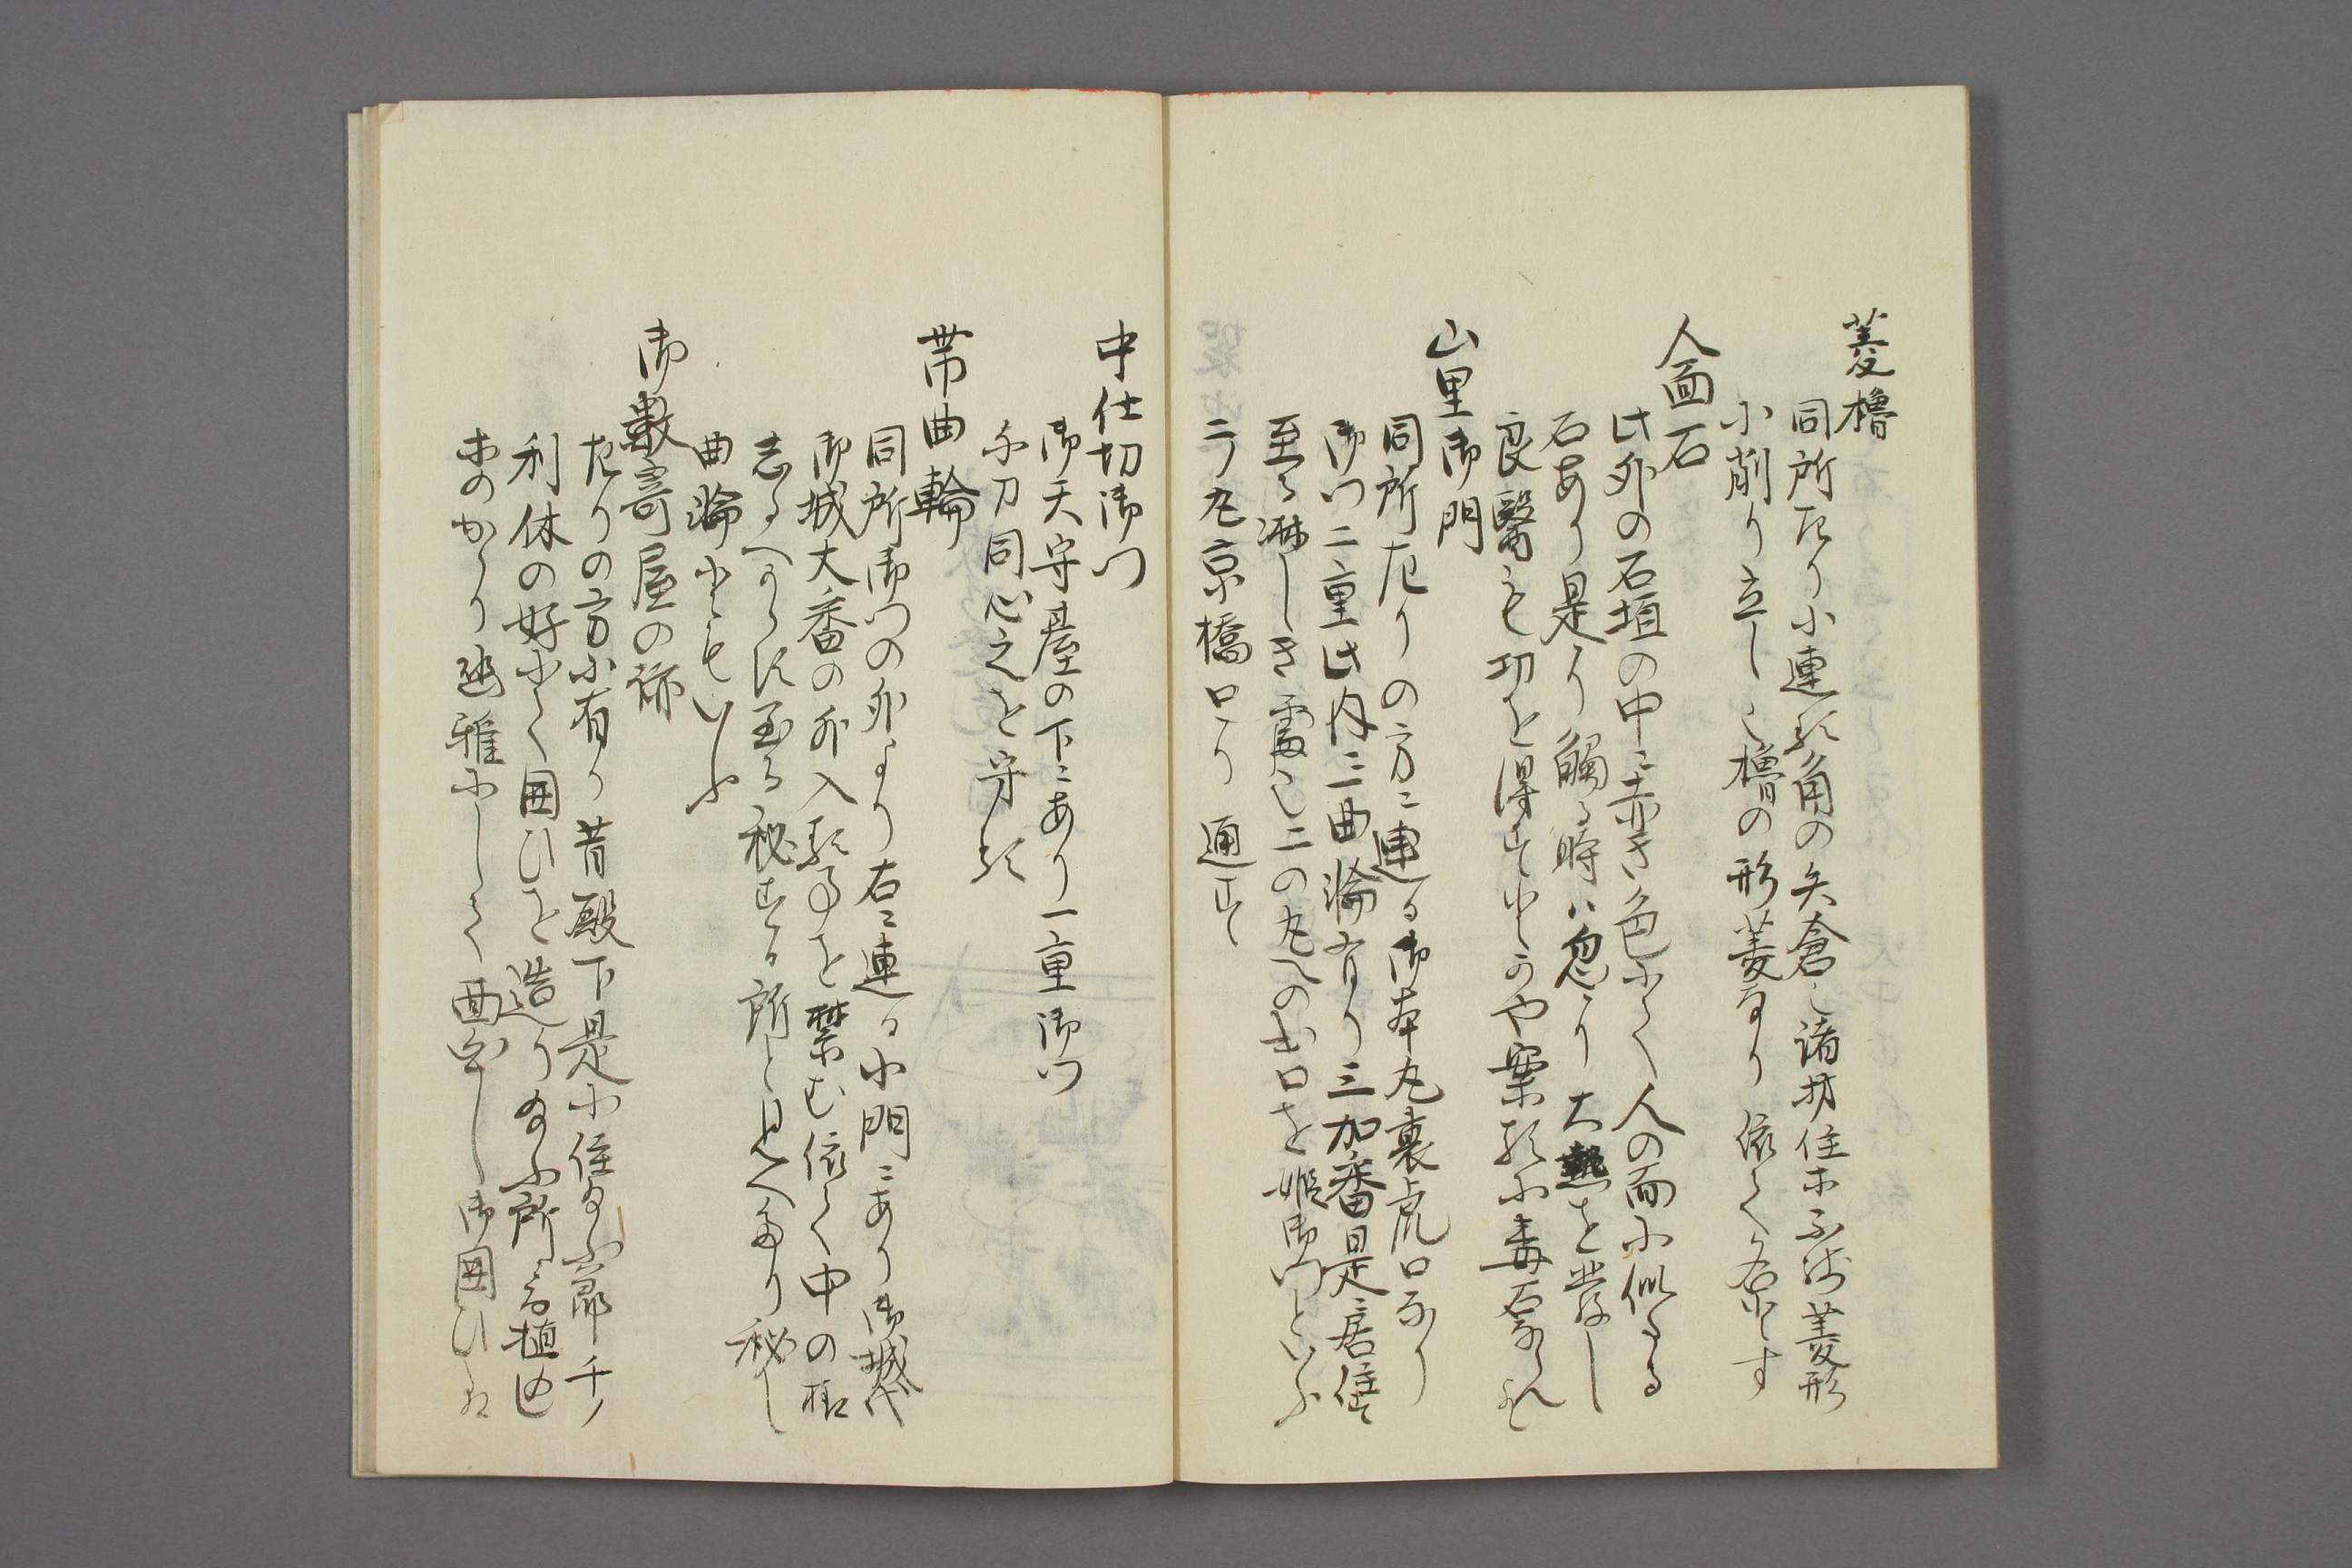 菱櫓
同所左りに連る角の矢倉也諸坊住ホ
に削り立し也櫓の形菱なり依て名とす
人面石
此外の石垣の中ニ赤き色にて人の面に似たる
石あり是より觸る時ハ忽より大熱を發し
良醫も功を得すとかや案るに毒石ならんと
山里御門
同所左りの方ニ連る御本丸裏虎口なり
御門二重此内二三曲輪有り三加番是ニ居住す
至る淋しき處也二の丸への出口を姫御門といふ
二ノ丸京橋口より通す
中仕切御門
御天守臺の下ニあり一重御門
与力同心之を守る
帯曲輪
同所御門の外より右ニ連る小門ニあり御城代
御城大番の外入る事を禁む依て中の様
志るへからす至る秘する所と見へたり秘し
曲輪ともいふ
御數寄屋の跡
左りの方に有り昔殿下是に住給ふ節千ノ
利休の好にて囲ひを造り給ふ所也植込
木のかゝり幽雅にして面白し御囲ひハ